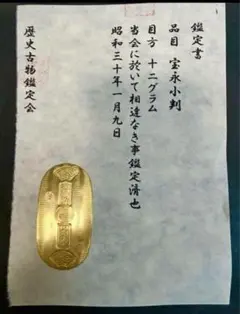 鑑定書
品目 宝永小判
目方 十二グラム
当会に於いて相違なき事鑑定済也
昭和三十年一月九日
歴史古物鑑定会